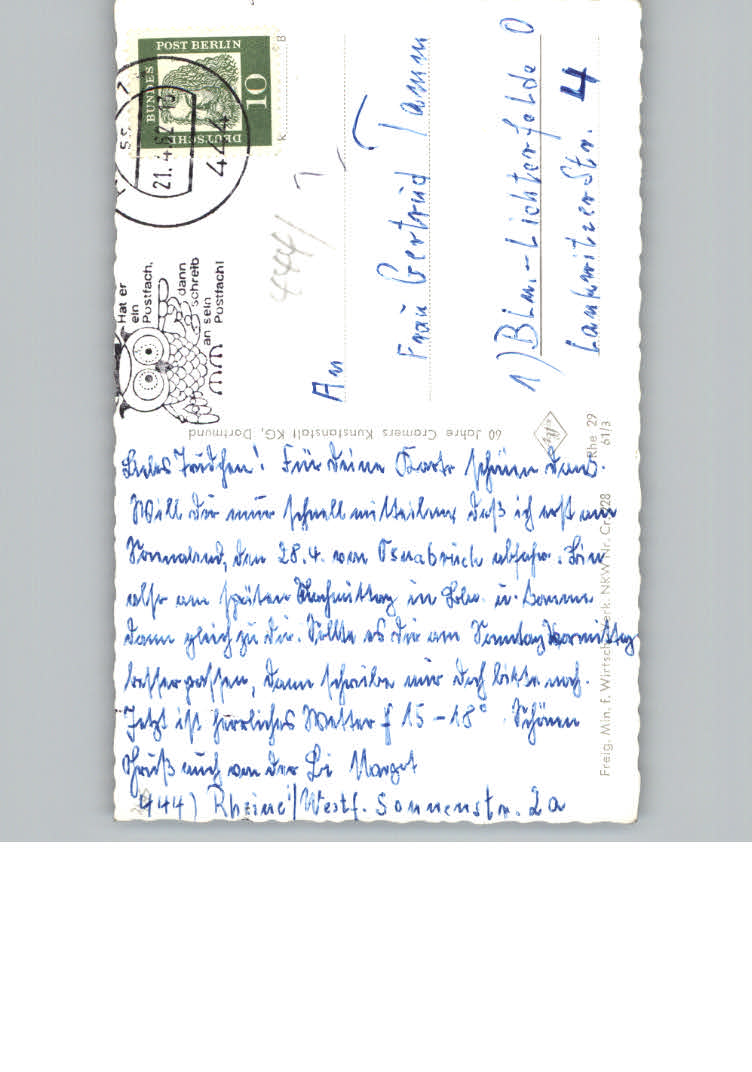 Liebes Trudchen! Für Deine Karte schönen Dank.
Will Dir nur schnell mitteilen, daß ich erst am
Sonnabend, den 28.4. von Osnabrück abfahre. Bin
also am späten Nachmittag in Bln. u. komme
dann gleich zu Dir. Sollte es Dir am Sonntag Vormittag
besser passen, dann schreibe mir doch bitte noch.
Jetzt ist herrliches Wetter 15 - 18° Schönen
Gruß auch von der Li Margot
444) Rheine/Westf. Sonnenstr. 2a
An
Frau Gertrud Tamm
1) Bln.-Lichterfelde O
Lankwitzer Str. 4
444/
DEUTSCHE BUNDESPOST BERLIN
10
21.4.62
444
Hat er
ein
Postfach,
dann
schreib
an sein
Postfach!
60 Jahre Cramers Kunstanstalt KG, Dortmund
Rhe 29
61/3
Freig. Min. f. Wirtsch. Verk. NRW Nr. Cr 528